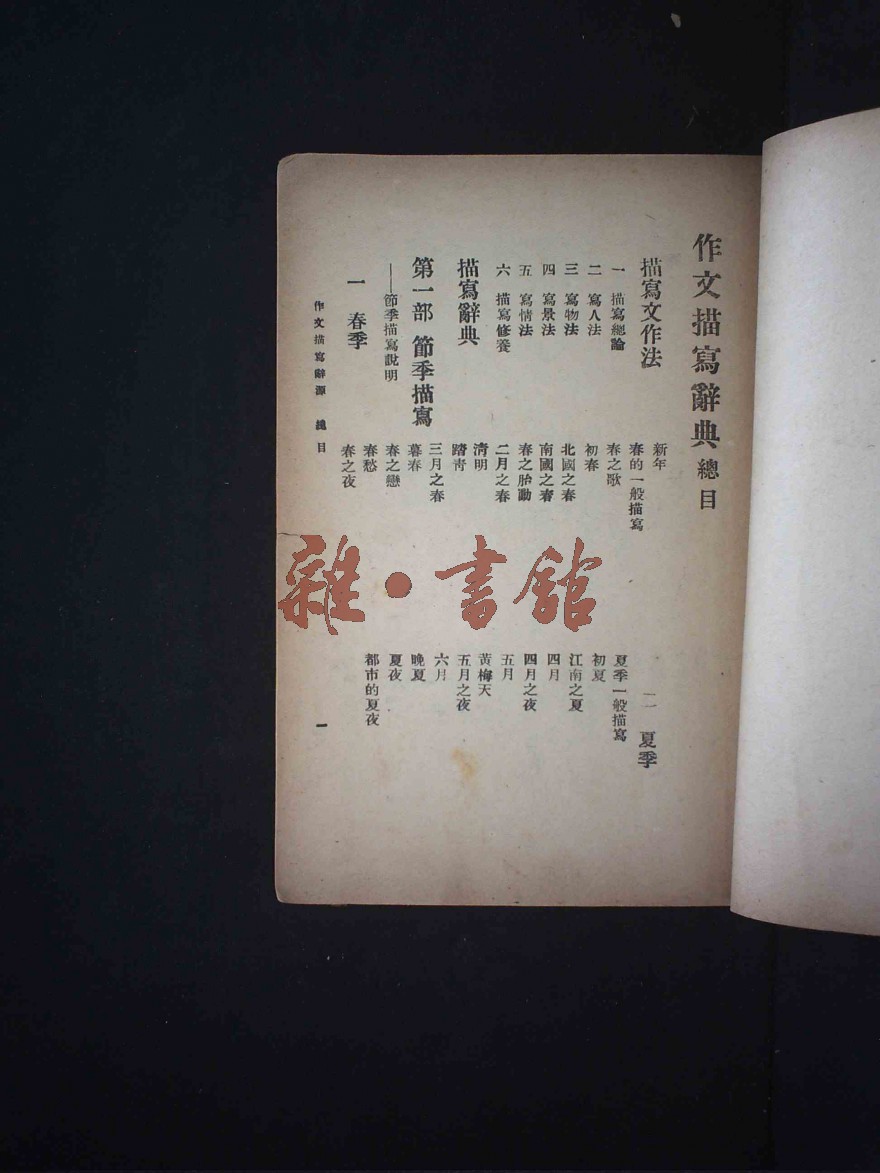 作文描寫辭典總目
描寫文作法
一 描寫總論
二 寫人法
三 寫物法
四 寫景法
五 寫情法
六 描寫修養
描寫辭典
第一部 節季描寫
——節季描寫說明
一 春季
新年
春的一般描寫
春之歌
初春
北國之春
南國之春
春之胎動
二月之春
清明
踏青
三月之春
暮春
春之戀
春愁
春之夜
二 夏季
夏季一般描寫
初夏
江南之夏
四月
四月之夜
五月
黃梅天
五月之夜
六月
晚夏
夏夜
都市的夏夜
作文描寫辭源 總目
一
雜·書館